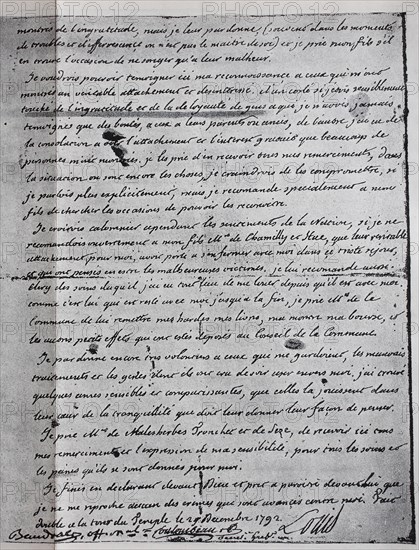 montrés de l'ingratitude, mais je leur pardonne, (souvent dans les moments
de troubles et d'effervescence on n'est pas le maitre de soi) et je prie mon fils s'il
en trouve l'occasion de ne songer qu'a leur malheur.
Je voudrois pouvoir temoigner ici ma reconnoissance a ceux qui m'ont
montrés un veritable attachement et desinteressé, d'un coté si j'etois sensiblement
touché de l'ingratitude et de la deloyauté de gens a qui je n'avois jamais
temoignés que des bontés, a eux a leurs parents ou amis, de l'autre j'ai eu de la
consolation a voir l'attachement et l'interet gratuit que beaucoup de
personnes m'ont montrés, je les prie d'en recevoir tous mes remerciments, dans
la situation ou sont encore les choses, je craindrois de les compromettre, si
je parlois plus explicitement, mais je recomande specialement a mon
fils de chercher les occasions de pouvoir les reconnoitre.
Je croirois calomnier cependant les sentiments de la Nation, si je ne
recomandois ouvertement a mon fils Mrs de Chamilly et Hue, que leur veritable
attachement pour moi, avoit porté a s'enfermer avec moi dans ce triste sejour,
et qui ont pensés en etre les malheureuses victimes, je lui recomande aussi
Clery des soins duquel j'ai eu tout lieu de me louer depuis qu'il est avec moi,
comme c'est lui qui est resté avec moi jusqu'a la fin, je prie Mrs de la
Commune de lui remettre mes hardes mes livres, ma montre ma bourse, et
les autres petits effets qui ont étés deposés au Conseil de la Commune.
Je pardonne encore tres volontiers a ceux qui me gardoient, les mauvais
traitements et les gesnes dont ils ont cru devoir user envers moi, j'ai trouvé
quelques ames sensibles et compatissantes, que celles la jouissent dans
leur cœur de la tranquillité que doit leur donner leur façon de penser.
Je prie Mrs de Malesherbes Tronchet et de Seze, de recevoir ici tous
mes remerciments et l'expression de ma sensibilité, pour tous les soins et
les peines qu'ils se sont donnés pour moi.
Je finis en declarant devant Dieu et pret a paroitre devant lui que
je ne me reproche aucun des crimes qui sont avancés contre moi. Fait
double a la tour du Temple le 25 Decembre 1792.
Louis